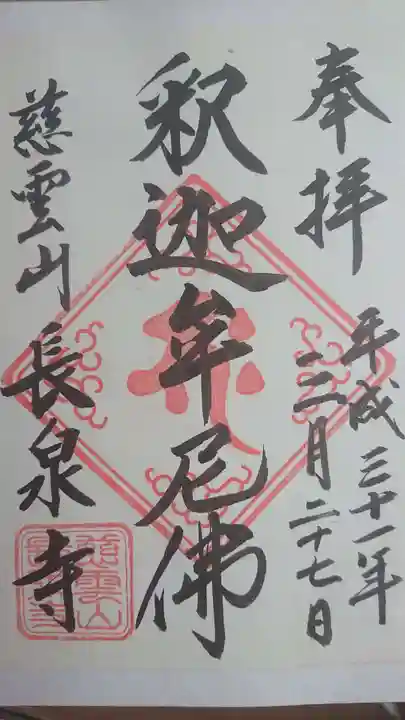 奉拝
平成三十一年
三月二十七日
釈迦牟尼佛
慈雲山 長泉寺